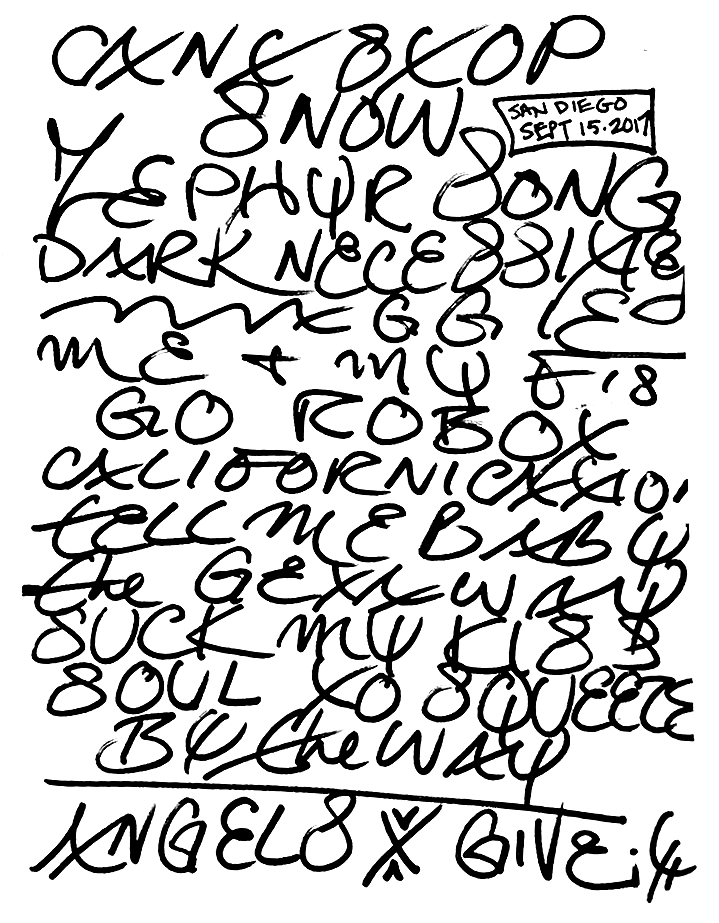 CAN'T STOP
SNOW
SAN DIEGO
SEPT 15.2017
ZEPHYR SONG
DARK NECESSITIE
ME + MY
GO ROBOT
CALIFORNICATION
TELL ME BABY
the GETAWAY
SUCK MY KISS
SOUL TO SQUEEZE
BY the WAY
ANGELS GIVE it